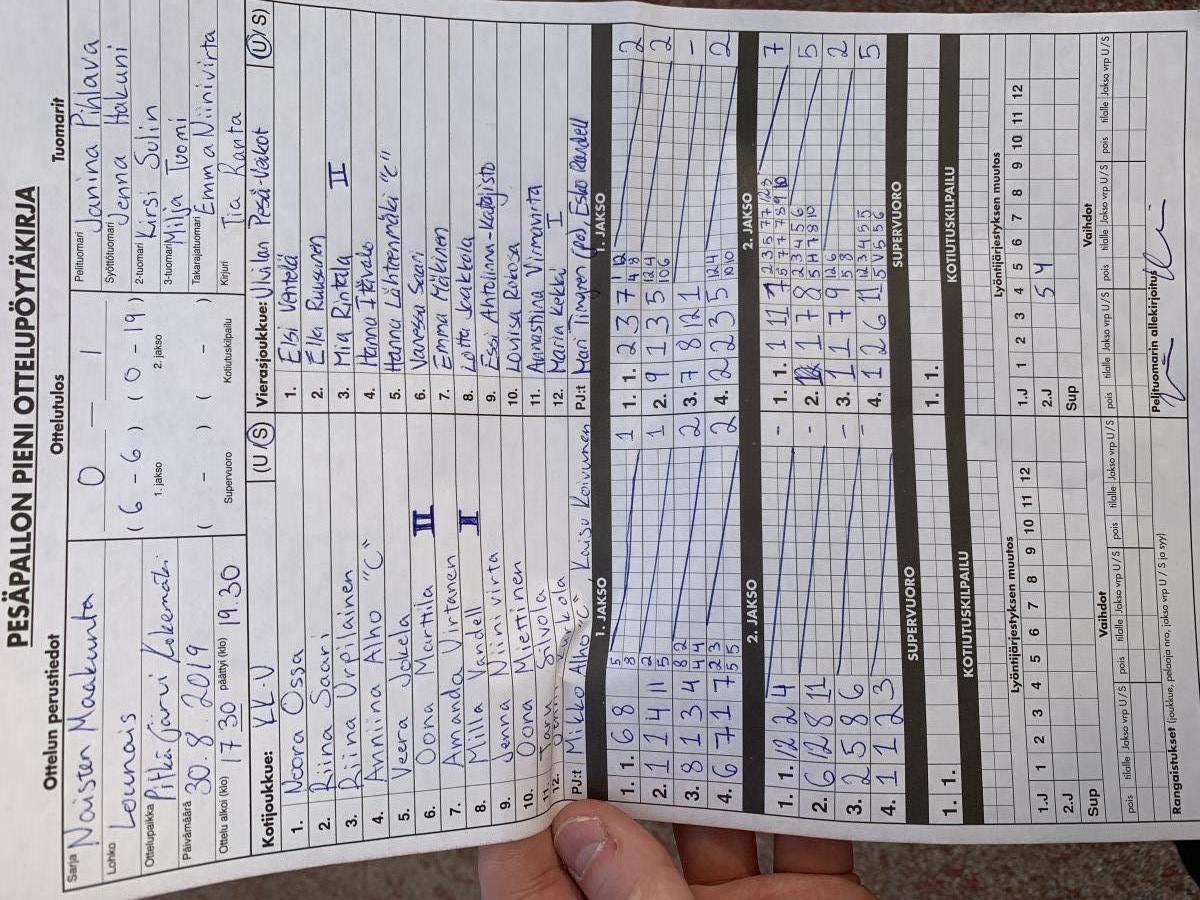 PESÄPALLON PIENI OTTELUPÖYTÄKIRJA
Ottelun perustiedot
Sarja Naisten Maakunta
Lohko Lounais
Ottelupaikka Pitkäjärvi Kokemäki
Päivämäärä 30.8.2019
Ottelu alkoi (klo) 17 30 päättyi (klo) 19.30
Ottelutulos
0 – 1
( 6 – 6 ) ( 0 – 19 )
1. jakso 2. jakso
( – ) ( – )
Supervuoro Kotiutuskilpailu
Tuomarit
Pelituomari Janina Pihlava
Syöttötuomari Jenna Hakuni
2-tuomari Kirsi Sulin
3-tuomari Nilja Tuomi
Takarajatuomari Emma Niinivirta
Kirjuri Tia Ranta
Kotijoukkue: KK-V (U/S)
1. Noora Ossa
2. Riina Saari
3. Riina Urpilainen
4. Anniina Alho "C"
5. Veera Jokela
6. Oona Marttila II
7. Amanda Virtanen
8. Milla Vandell I
9. Jenna Niinivirta
10. Oona Miettinen
11. Taru Sivola
12.
PJ:t Mikko Alho "C", Kaisu Koivunen
Vierasjoukkue: Ulvilan Pesä-Veikot (U/S)
1. Elsi Ventelä
2. Ella Ruusunen
3. Mia Rintala II
4. Hanna Itävalo
5. Hanna Lähteenmäki "C"
6. Vanessa Saari
7. Emma Mäkinen
8. Lotta Jaakkola
9. Essi Antolima-Katajisto
10. Lovisa Rokosa
11. Annastiina Virmavirta
12. Marin Kekki I
PJ:t Mari Tingren (pe) Esko Randell
1. JAKSO
1. 1. 6 8 5 8 1
2. 1 1 4 11 2 5 1
3. 8 1 3 4 8 2 4 4 2
4. 6 7 1 7 2 3 5 5 2
1. JAKSO
1. 1. 2 3 7 2
2. 9 1 3 5 2
3. 7 8 12 1 –
4. 2 2 3 5 2
2. JAKSO
1. 1. 12 2 4 -
2. 6 12 8 11 -
3. 2 5 8 6 -
4. 1 1 2 3 -
2. JAKSO
1. 1. 1 11 7
2. 1 7 8 5
3. 1 1 7 9 2
4. 1 2 6 11 5
SUPERVUORO
1. 1.
SUPERVUORO
1. 1.
KOTIUTUSKILPAILU
KOTIUTUSKILPAILU
Lyöntijärjestyksen muutos
1.J 1 2 3 4 5 6 7 8 9 10 11 12
2.J
Sup
Lyöntijärjestyksen muutos
1.J 1 2 3 4 5 6 7 8 9 10 11 12
2.J 5 4
Sup
Vaihdot
pois tilalle Jakso vrp U / S pois tilalle Jakso vrp U / S pois tilalle Jakso vrp U / S
Vaihdot
pois tilalle Jakso vrp U / S pois tilalle Jakso vrp U / S pois tilalle Jakso vrp U / S
Rangaistukset (joukkue, pelaaja nro, jakso vrp U / S ja syy)
Pelituomarin allekirjoitus